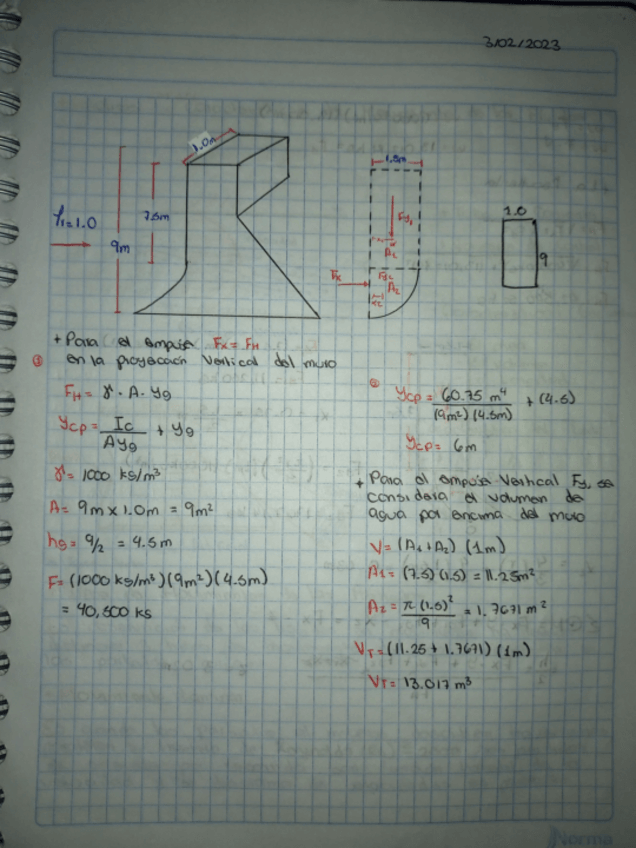 3/02/2023
1.0m
γ=1.0
7.5m
9m
1.5m
Fy1
A1
Fx
Fy2
A2
x2
1.0
9
+ Para el empuje Fx = FH
en la proyección vertical del muro
①
FH = γ · A · yg
ycp = Ic / Ayg + yg
γ = 1000 ks/m³
A = 9m x 1.0m = 9m²
hg = 9/2 = 4.5m
F = (1000 ks/m³)(9m²)(4.5m)
= 40,500 ks
②
ycp = 60.75 m⁴ / (9m²)(4.5m) + (4.5)
ycp = 6m
+ Para el empuje Vertical Fy, se
considera el volumen de
agua por encima del muro
V = (A1 + A2) (1m)
A1 = (7.5)(1.5) = 11.25m²
A2 = π(1.5)² / 4 = 1.7671 m²
VT = (11.25 + 1.7671) (1m)
VT = 13.017 m³
Norma